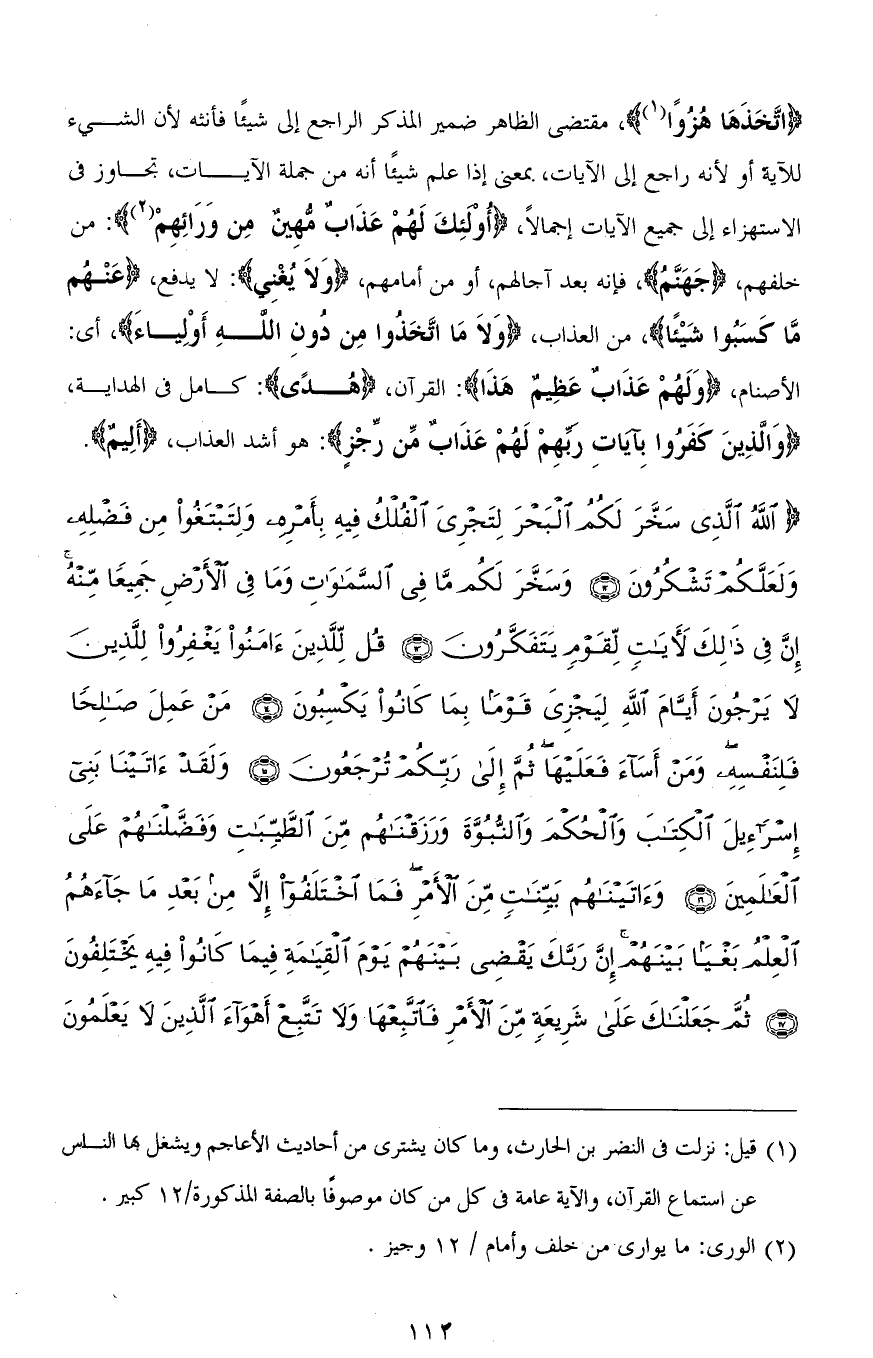 ﴿اتَّخَذَهَا هُزُوًا(١)﴾، مقتضى الظاهر ضمير المذكر الراجع إلى شيئًا فأنثه لأن الشـــيء
للآية أو لأنه راجع إلى الآيات، بمعنى إذا علم شيئًا أنه من جملة الآيـــــات، تجـــاوز فى
الاستهزاء إلى جميع الآيات إجمالاً، ﴿أُوْلَئِكَ لَهُمْ عَذَابٌ مُّهِينٌ مِن وَرَائِهِمْ(٢)﴾: من
خلفهم، ﴿جَهَنَّمُ﴾، فإنه بعد آجالهم، أو من أمامهم، ﴿وَلاَ يُغْنِي﴾: لا يدفع، ﴿عَنْــهُم
مَّا كَسَبُوا شَيْئًا﴾، من العذاب، ﴿وَلاَ مَا اتَّخَذُوا مِن دُونِ اللَّـــهِ أَوْلِيـــاءَ﴾، أى:
الأصنام، ﴿وَلَهُمْ عَذَابٌ عَظِيمٌ هَذَا﴾: القرآن، ﴿هُـــدًى﴾: كـــامل فى الهدايـــة،
﴿وَالَّذِينَ كَفَرُوا بِآيَاتِ رَبِّهِمْ لَهُمْ عَذَابٌ مِّن رِّجْزٍ﴾: هو أشد العذاب، ﴿أَلِيمٌ﴾.
﴿ ٱللَّهُ ٱلَّذِى سَخَّرَ لَكُمُ ٱلْبَحْرَ لِتَجْرِىَ ٱلْفُلْكُ فِيهِ بِأَمْرِهِۦ وَلِتَبْتَغُوا۟ مِن فَضْلِهِۦ
وَلَعَلَّكُمْ تَشْكُرُونَ ١٢ وَسَخَّرَ لَكُم مَّا فِى ٱلسَّمَـٰوَٰتِ وَمَا فِى ٱلْأَرْضِ جَمِيعًا مِّنْهُ ۚ
إِنَّ فِى ذَٰلِكَ لَـَٔايَـٰتٍ لِّقَوْمٍ يَتَفَكَّرُونَ ١٣ قُل لِّلَّذِينَ ءَامَنُوا۟ يَغْفِرُوا۟ لِلَّذِينَ
لَا يَرْجُونَ أَيَّامَ ٱللَّهِ لِيَجْزِىَ قَوْمًۢا بِمَا كَانُوا۟ يَكْسِبُونَ ١٤ مَنْ عَمِلَ صَـٰلِحًا
فَلِنَفْسِهِۦ ۖ وَمَنْ أَسَآءَ فَعَلَيْهَا ۖ ثُمَّ إِلَىٰ رَبِّكُمْ تُرْجَعُونَ ١٥ وَلَقَدْ ءَاتَيْنَا بَنِىٓ
إِسْرَٰٓءِيلَ ٱلْكِتَـٰبَ وَٱلْحُكْمَ وَٱلنُّبُوَّةَ وَرَزَقْنَـٰهُم مِّنَ ٱلطَّيِّبَـٰتِ وَفَضَّلْنَـٰهُمْ عَلَى
ٱلْعَـٰلَمِينَ ١٦ وَءَاتَيْنَـٰهُم بَيِّنَـٰتٍ مِّنَ ٱلْأَمْرِ ۖ فَمَا ٱخْتَلَفُوٓا۟ إِلَّا مِنۢ بَعْدِ مَا جَآءَهُمُ
ٱلْعِلْمُ بَغْيًۢا بَيْنَهُمْ ۚ إِنَّ رَبَّكَ يَقْضِى بَيْنَهُمْ يَوْمَ ٱلْقِيَـٰمَةِ فِيمَا كَانُوا۟ فِيهِ يَخْتَلِفُونَ
١٧ ثُمَّ جَعَلْنَـٰكَ عَلَىٰ شَرِيعَةٍ مِّنَ ٱلْأَمْرِ فَٱتَّبِعْهَا وَلَا تَتَّبِعْ أَهْوَآءَ ٱلَّذِينَ لَا يَعْلَمُونَ
(١) قيل: نزلت فى النضر بن الحارث، وما كان يشترى من أحاديث الأعاجم ويشغل بها النــاس
عن استماع القرآن، والآية عامة فى كل من كان موصوفًا بالصفة المذكورة/١٢ كبير .
(٢) الورى: ما يوارى من خلف وأمام / ١٢ وجيز .
١١٢